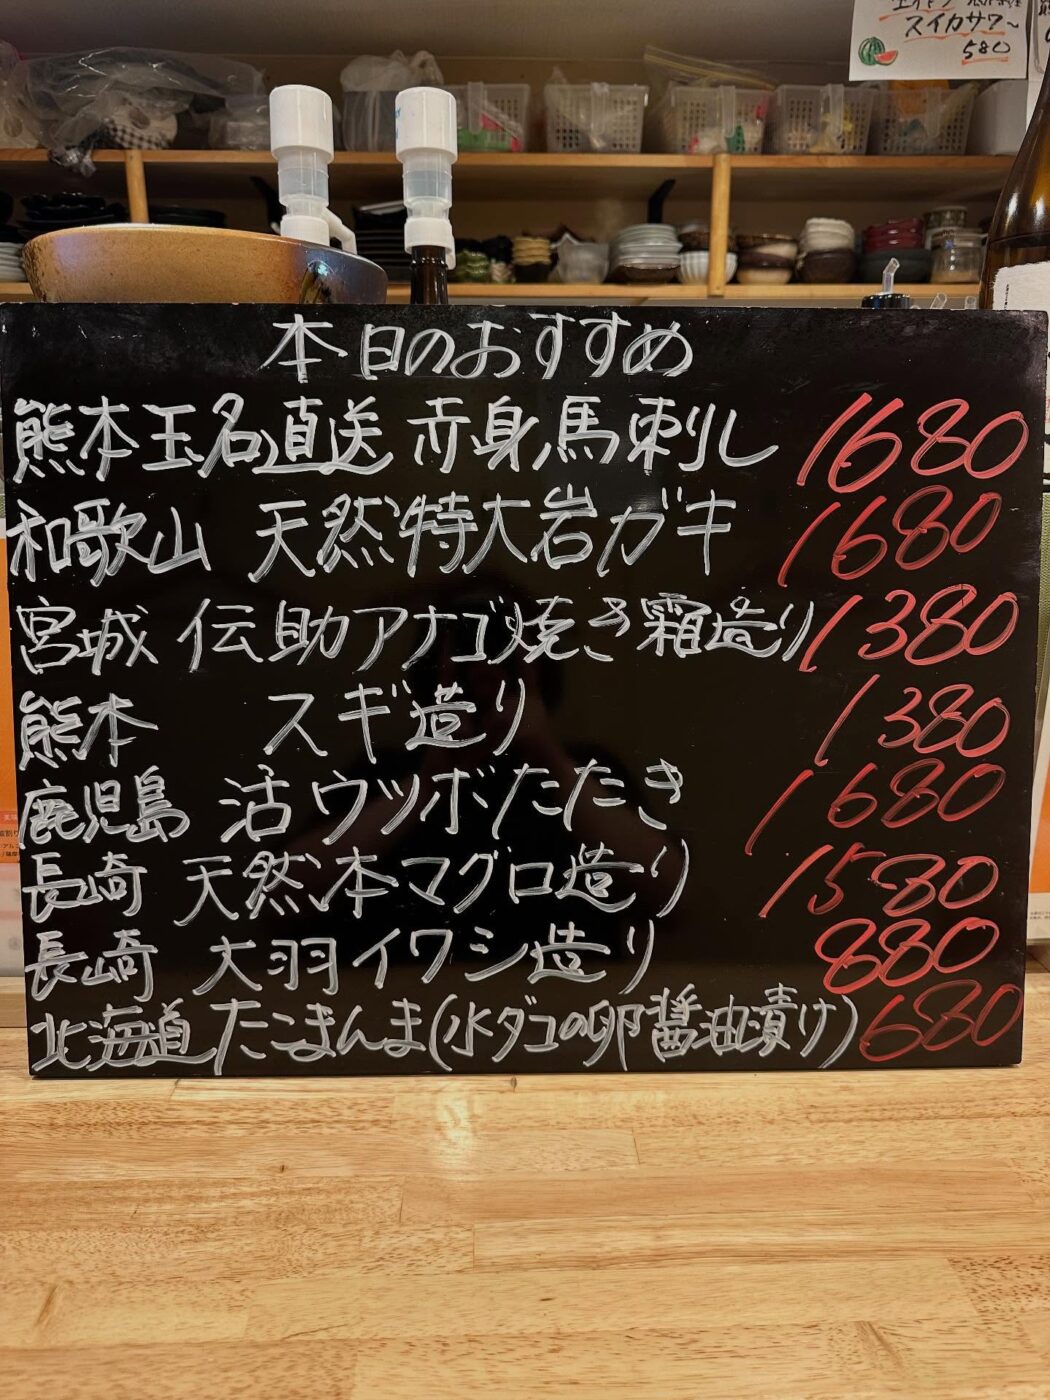 スイカサワー
580
本日のおすすめ
熊本玉名直送 赤身馬刺し 1680
和歌山 天然特大岩ガキ 1680
宮城 伝助アナゴ焼き霜造り 1380
熊本 スギ造り 1380
鹿児島 活ウツボたたき 1680
長崎 天然本マグロ造り 1580
長崎 大羽イワシ造り 880
北海道 たこまんま(水ダコの卵醤油漬け) 680